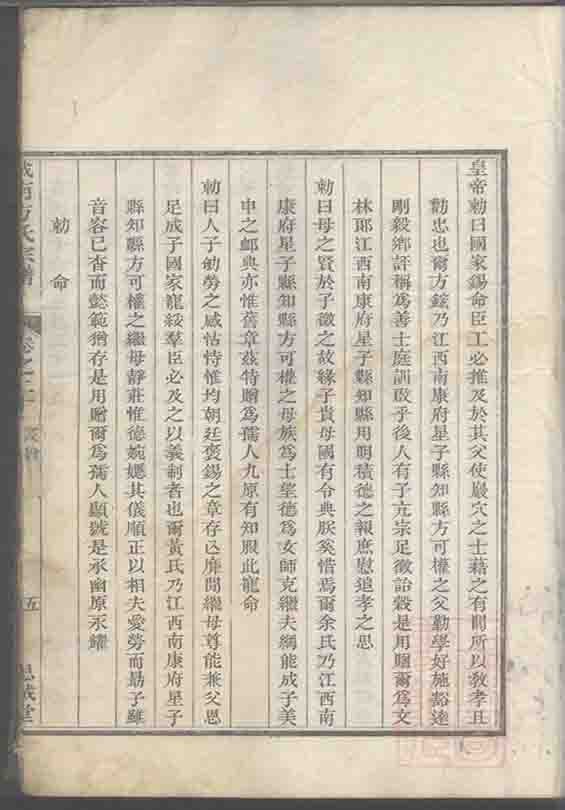 皇帝勅曰國家錫命臣工必推及於其父使巖穴之士藉之有聞所以敎孝且
勸忠也爾方鋐乃江西南康府星子縣知縣方可權之父勤學好施谿達
剛毅鄉評稱爲善士庭訓啟乎後人有子亢宗足徵詒穀是用贈爾爲文
林郎江西南康府星子縣知縣用朙積德之報庶慰追孝之思
勅曰母之賢於子徵之故緣子貴母國有令典朕奚惜焉爾余氏乃江西南
康府星子縣知縣方可權之母族爲士望德爲女師克繼夫綱能成子美
申之卹典亦惟舊章茲特贈爲孺人九原有知服此寵命
勅曰人子劬勞之感怙恃惟均朝廷褒錫之章存亾靡間繼母尊能兼父恩
足成子國家寵綏羣臣必及之以義制者也爾黃氏乃江西南康府星子
縣知縣方可權之繼母靜莊惟德婉嫕其儀順正以相夫愛勞而勗子雖
音容已杳而懿範猶存是用贈爾爲孺人顯號是承幽原永耀
勅命
城南方氏宗譜
卷之二
五
思成堂